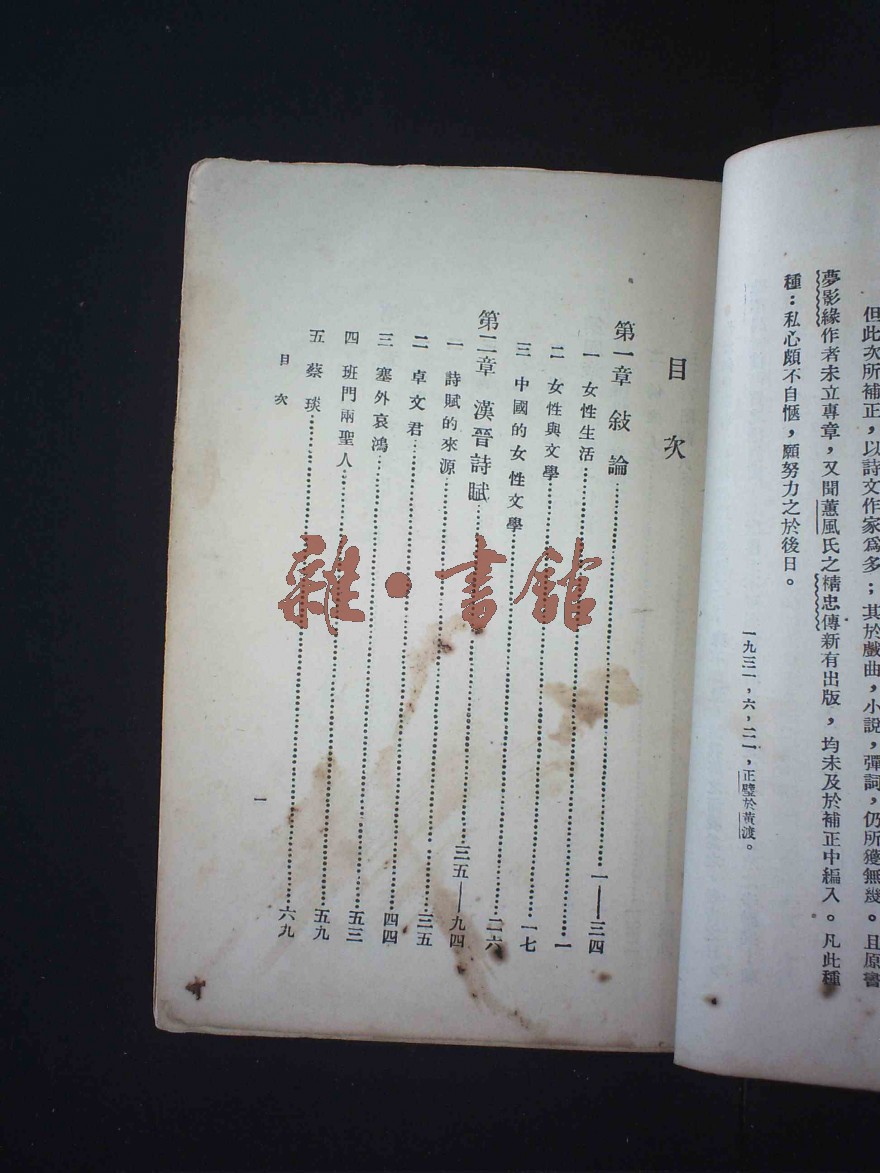 但此次所補正，以詩文作家為多；其於戲曲，小說，彈詞，仍所獲無幾。且原書
夢影緣作者未立專章，又聞薰風氏之精忠傳新有出版，均未及於補正中編入。凡此種
種：私心頗不自愜，願努力之於後日。
一九三一，六，二一，正璧於黃渡。
目次
第一章 敍論……一——三四
一 女性生活……一
二 女性與文學……一七
三 中國的女性文學……二六
第二章 漢晉詩賦……三五——九四
一 詩賦的來源……三五
二 卓文君……四四
三 塞外哀鴻……五三
四 班門兩聖人……五九
五 蔡琰……六九
目次
一
雜·書館